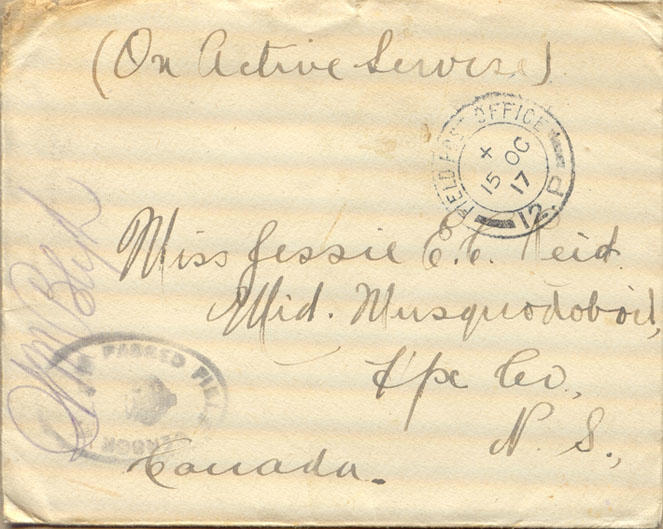 (On Active Service)
FIELD POST OFFICE
X
15 OC
17
12.P
Miss Jessie E.C. Reid.
Mid. Musquodoboit,
H'fx Co.,
N. S.,
Canada.
PASSED FIELD
CENSOR